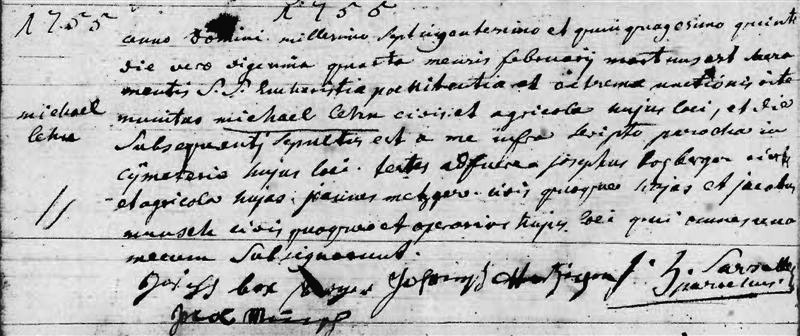 1755 1755
anno Domini millesimo septingentesimo et quinquagesimo quinto
die vero vigesima quarta mensis february mortuus est sacra
mentis S.S. Eucharistia poenitentia et extrema unctionis rite
munitus michael Lehn civis et agricola hujus loci, et die
michael
Lehn
subsequenti sepultus est a me infra scripto parocho in
cymeterio hujus loci. testes adfuere josephus boxberger civis
et agricola hujas. joannes metzger civis quoque hujas et jacobus
munsch civis quoque et operarius hujus loci qui omnes una
mecum subsignarunt.
Joseph box